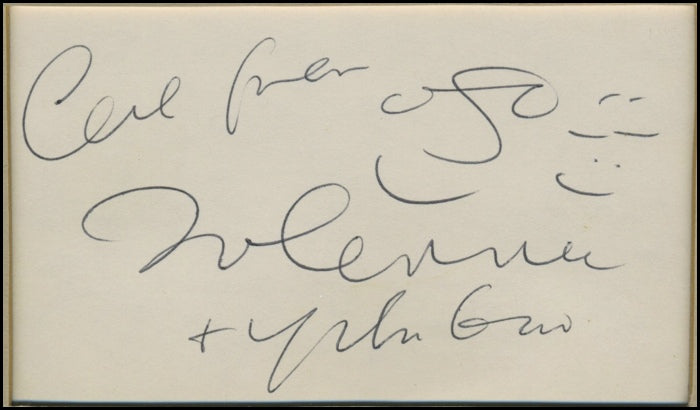 Love from
John Lennon
+ Yoko Ono